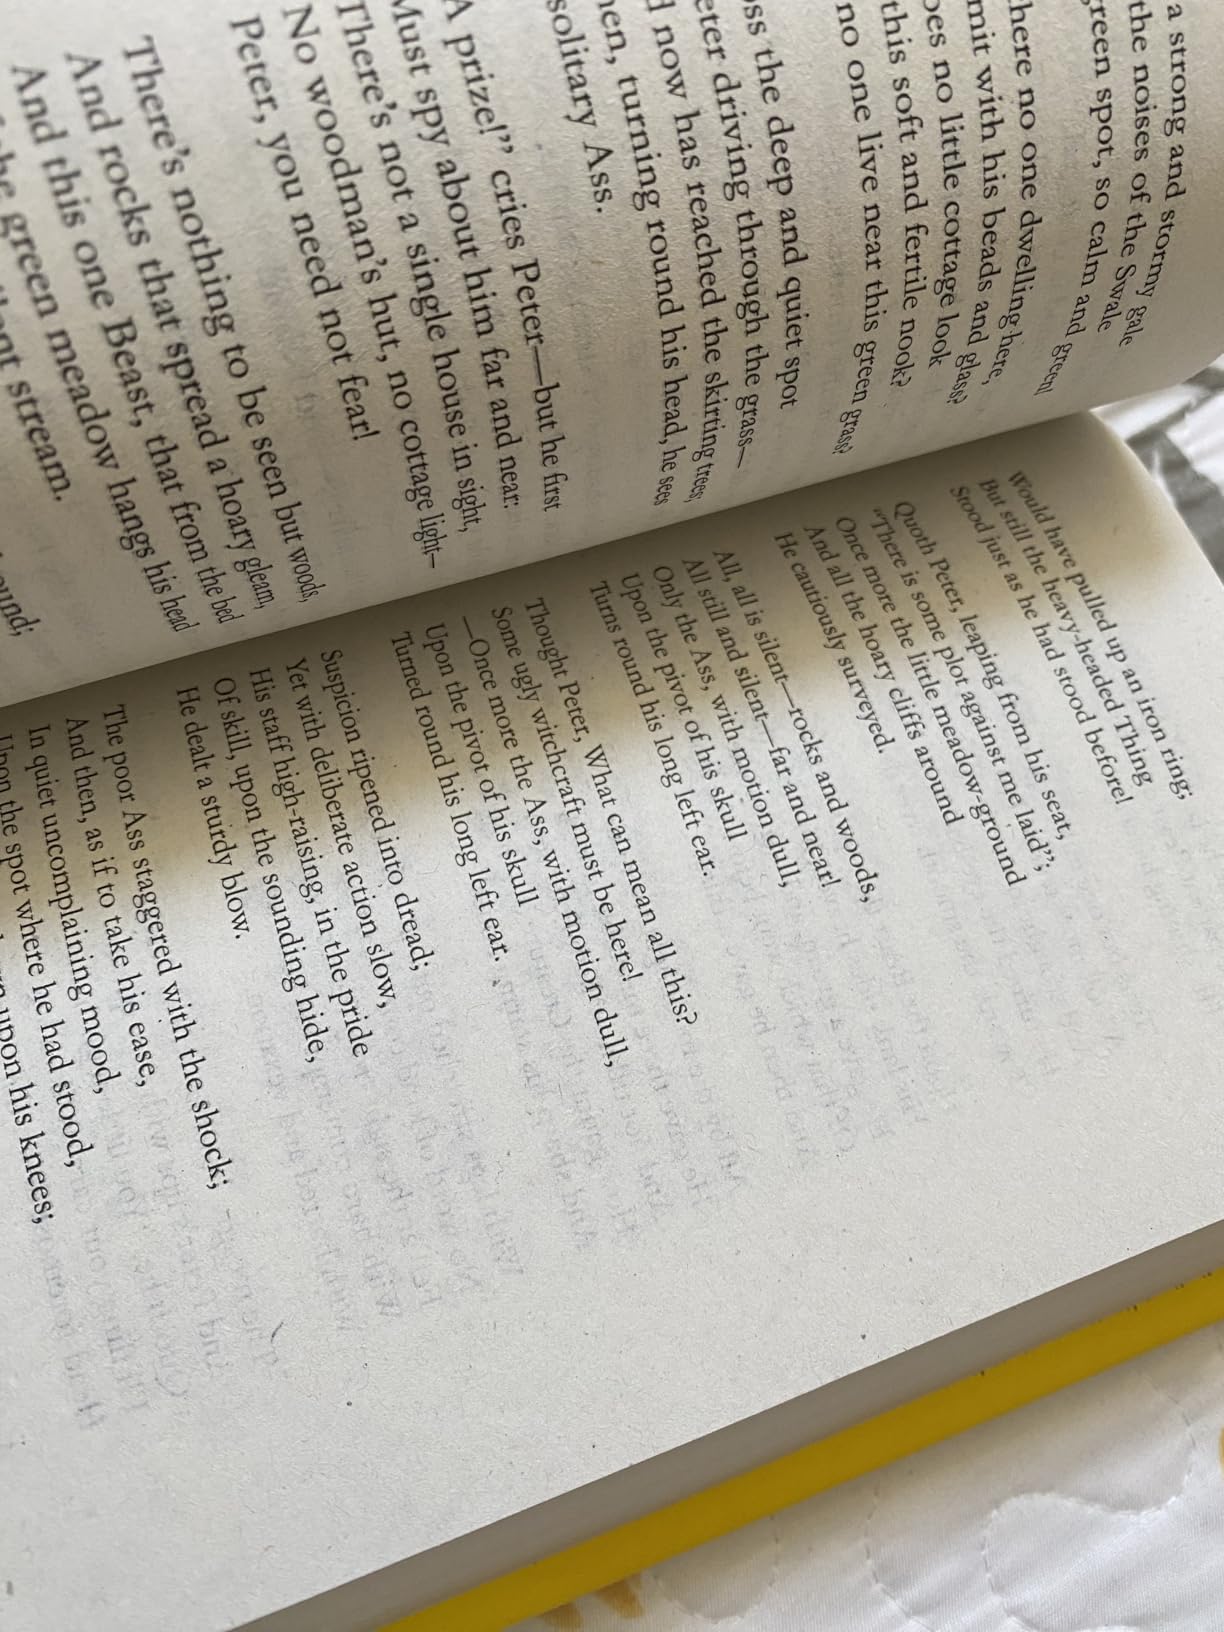 a strong and stormy gale
the noises of the Swale
green spot, so calm and green!
here no one dwelling here,
mit with his beads and glass?
oes no little cottage look
this soft and fertile nook?
no one live near this green grass?
oss the deep and quiet spot
eter driving through the grass—
d now has reached the skirting trees;
hen, turning round his head, he sees
solitary Ass.
A prize!” cries Peter—but he first
Must spy about him far and near:
There's not a single house in sight,
No woodman's hut, no cottage light—
Peter, you need not fear!
There's nothing to be seen but woods,
And rocks that spread a hoary gleam,
And this one Beast, that from the bed
the green meadow hangs his head
stream.
ound;
Would have pulled up an iron ring;
But still the heavy-headed Thing
Stood just as he had stood before!
Quoth Peter, leaping from his seat,
“There is some plot against me laid”;
Once more the little meadow-ground
And all the hoary cliffs around
He cautiously surveyed.
All, all is silent—rocks and woods,
All still and silent—far and near!
Only the Ass, with motion dull,
Upon the pivot of his skull
Turns round his long left ear.
Thought Peter, What can mean all this?
Some ugly witchcraft must be here!
—Once more the Ass, with motion dull,
Upon the pivot of his skull
Turned round his long left ear.
Suspicion ripened into dread;
Yet with deliberate action slow,
His staff high-raising, in the pride
Of skill, upon the sounding hide,
He dealt a sturdy blow.
The poor Ass staggered with the shock;
And then, as if to take his ease,
In quiet uncomplaining mood,
Upon the spot where he had stood,
upon his knees;